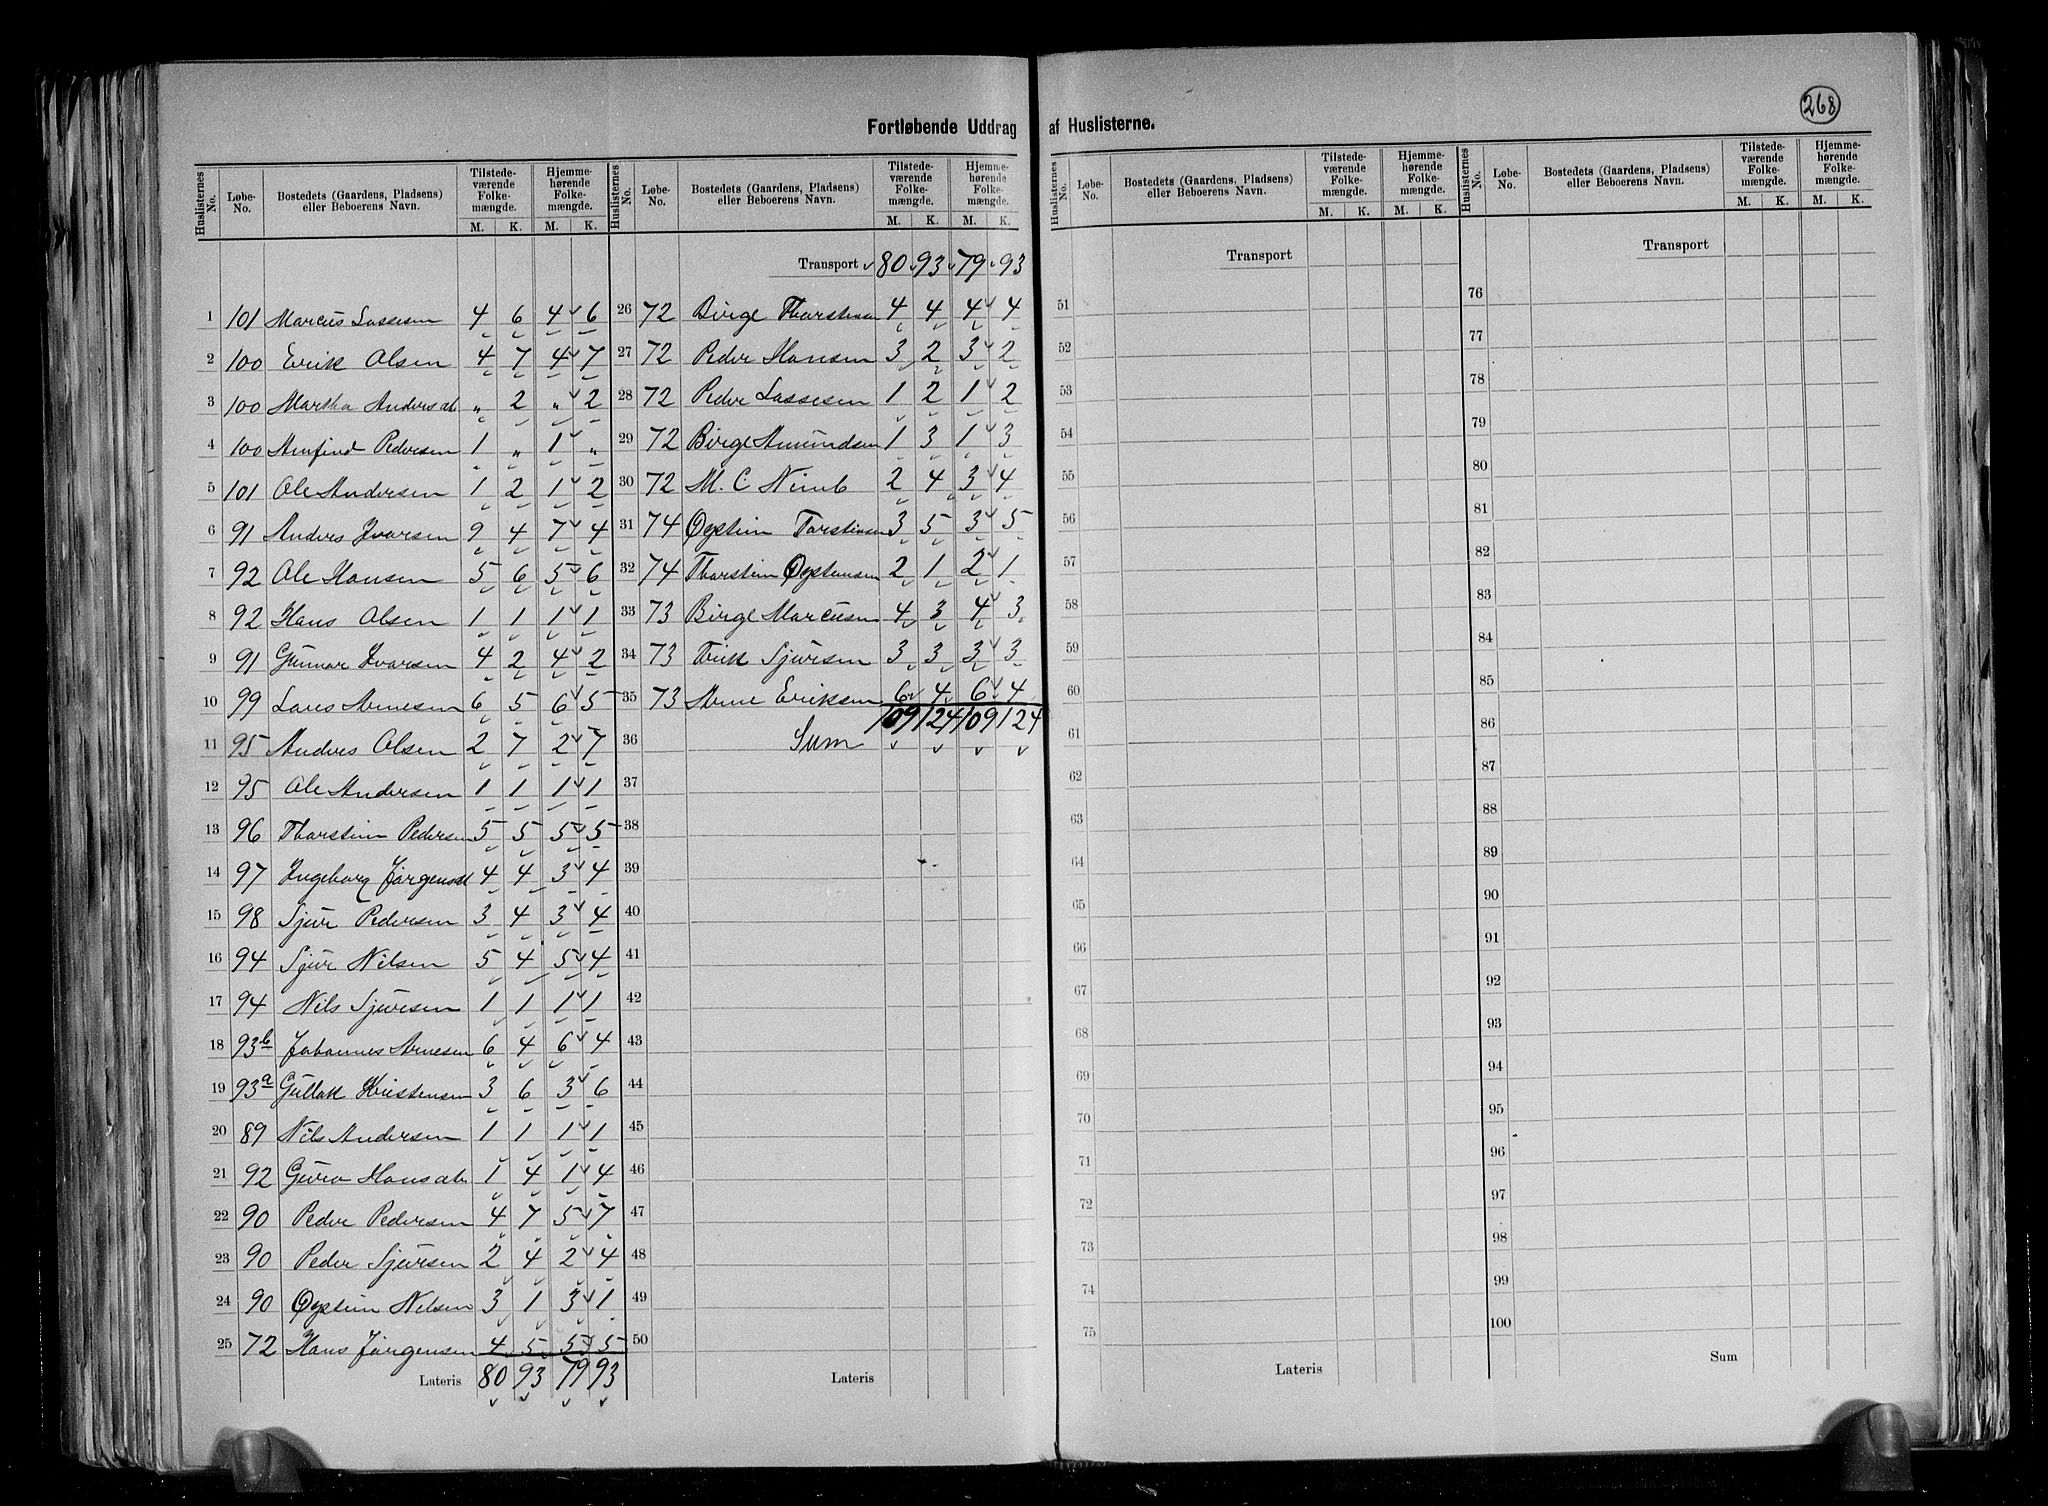 268
Fortløbende Uddrag af Huslisterne.
Huslisternes No. Løbe-No. Bostedets (Gaardens, Pladsens) eller Beboerens Navn. Tilstedeværende Folkemængde. M. K. Hjemmehørende Folkemængde. M. K.
1 101 Marcus Lassesen 4 6 4 6
2 100 Erik Olsen 4 7 4 7
3 100 Martha Andersdt. „ 2 „ 2
4 100 Arnfind Pedersen 1 „ 1 „
5 101 Ole Andersen 1 2 1 2
6 91 Anders Ivarsen 9 4 7 4
7 92 Ole Hansen 5 6 5 6
8 92 Hans Olsen 1 1 1 1
9 91 Gunnar Ivarsen 4 2 4 2
10 99 Lars Arnesen 6 5 6 5
11 95 Anders Olsen 2 7 2 7
12 95 Ole Andersen 1 1 1 1
13 96 Thorstein Pedersen 5 5 5 5
14 97 Ingeborg Jørgensdt 4 4 3 4
15 98 Sjur Pedersen 3 4 3 4
16 94 Sjur Nilsen 5 4 5 4
17 94 Nils Sjursen 1 1 1 1
18 93b Johannes Arnesen 6 4 6 4
19 93a Gullak Kristensen 3 6 3 6
20 89 Nils Andersen 1 1 1 1
21 92 Guro Hansdtr 1 4 1 4
22 90 Peder Pedersen 4 7 5 7
23 90 Peder Sjursen 2 4 2 4
24 90 Øystein Nilsen 3 1 3 1
25 72 Hans Jørgensen 4 5 5 5
Lateris 80 93 79 93
Huslisternes No. Løbe-No. Bostedets (Gaardens, Pladsens) eller Beboerens Navn. Tilstedeværende Folkemængde. M. K. Hjemmehørende Folkemængde. M. K.
Transport 80 93 79 93
26 72 Birge Thorsteinsen 4 4 4 4
27 72 Peder Hansen 3 2 3 2
28 72 Peder Lassesen 1 2 1 2
29 72 Birge Amundsen 1 3 1 3
30 72 M. C Nimb 2 4 3 4
31 74 Øystein Torsteinsen 3 5 3 5
32 74 Thorstein Øystensen 2 1 2 1
33 73 Birge Marcusen 4 3 4 3
34 73 Erik Sjursen 3 3 3 3
35 73 Arne Eriksen 6 4 6 4
36 Sum 109 124 109 124
37
38
39
40
41
42
43
44
45
46
47
48
49
50
Lateris
Huslisternes No. Løbe-No. Bostedets (Gaardens, Pladsens) eller Beboerens Navn. Tilstedeværende Folkemængde. M. K. Hjemmehørende Folkemængde. M. K.
Transport
51
52
53
54
55
56
57
58
59
60
61
62
63
64
65
66
67
68
69
70
71
72
73
74
75
Lateris
Huslisternes No. Løbe-No. Bostedets (Gaardens, Pladsens) eller Beboerens Navn. Tilstedeværende Folkemængde. M. K. Hjemmehørende Folkemængde. M. K.
Transport
76
77
78
79
80
81
82
83
84
85
86
87
88
89
90
91
92
93
94
95
96
97
98
99
100
Sum